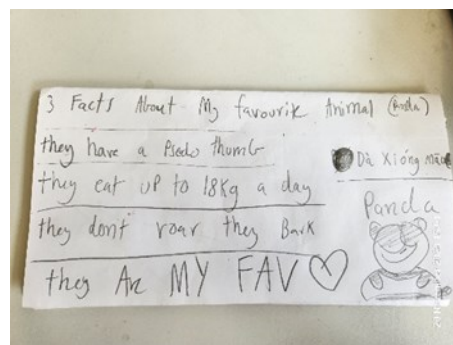 3 Facts About My favourite Animal (Panda)
they have a Psedo thumb
they eat up to 18kg a day
they don't roar they Bark
they Are MY FAV
Dà Xióng māo
Panda